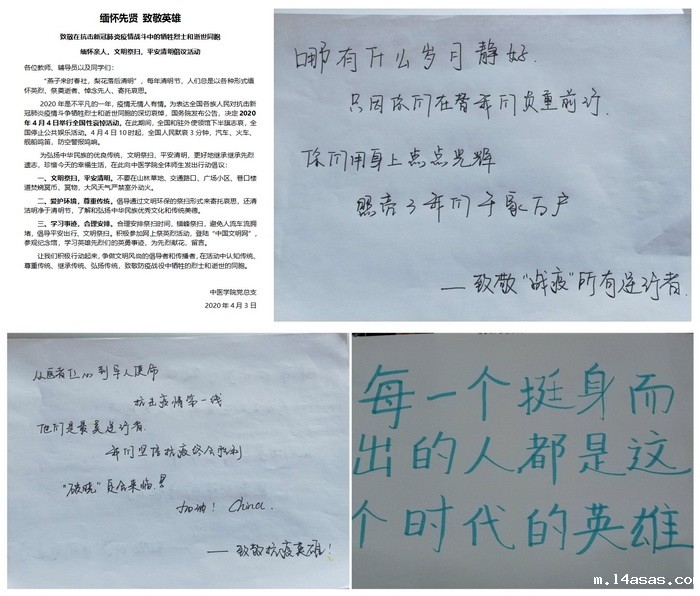 缅怀先贤 致敬英雄
致敬在抗击新冠肺炎疫情战斗中的牺牲烈士和逝世同胞
缅怀亲人，文明祭扫，平安清明倡议活动
各位教师、辅导员以及同学们：
“燕子来时春社，梨花落后清明”，每年清明节，人们总是以各种形式缅
怀英烈、祭奠逝者、悼念先人、寄托哀思。
2020 年是不平凡的一年，疫情无情人有情。为表达全国各族人民对抗击新
冠肺炎疫情斗争牺牲烈士和逝世同胞的深切哀悼，国务院发布公告，决定 2020
年 4 月 4 日举行全国性哀悼活动。在此期间，全国和驻外使领馆下半旗志哀，全
国停止公共娱乐活动。4 月 4 日 10 时起，全国人民默哀 3 分钟，汽车、火车、
舰船鸣笛，防空警报鸣响。
为弘扬中华民族的优良传统，文明祭扫，平安清明，更好地继承继承先烈
遗志，珍惜今天的幸福生活，在此向中医学院全体师生发出行动倡议：
一、文明祭扫，平安清明。不要在山林草地、交通路口、广场小区、巷口楼
道焚烧冥币、冥物，大风天气严禁室外动火。
二、爱护环境，尊重传统。倡导通过文明环保的祭扫形式来寄托哀思，还清
洁明净于清明节，了解和弘扬中华民族优秀文化和传统美德。
三、学习事迹，合理安排。合理安排祭扫时间，错峰祭扫，避免人流车流拥
堵，倡导平安出行、文明祭扫。积极参加网上祭英烈活动，登陆“中国文明网”，
参观纪念馆，学习英雄先烈们的英勇事迹，为先烈献花、留言。
让我们积极行动起来，争做文明风尚的倡导者和传播者，在活动中认知传统、
尊重传统、继承传统、弘扬传统，致敬防疫战役中牺牲的烈士和逝世的同胞。
中医学院党总支
2020 年 4 月 3 日
哪有什么岁月静好.
只因你们在替我们负重前行.
你们用身上点点光辉
照亮了我们千家万户
——致敬“战疫”所有逆行者.
从医者仁心到军人使命
抗击疫情第一线
他们是最美逆行者.
我们坚信抗疫终会胜利
“破晓”真会来临!!
加油! China.
——致敬抗疫英雄!
每一个挺身而
出的人都是这
个时代的英雄
m.14asas.com